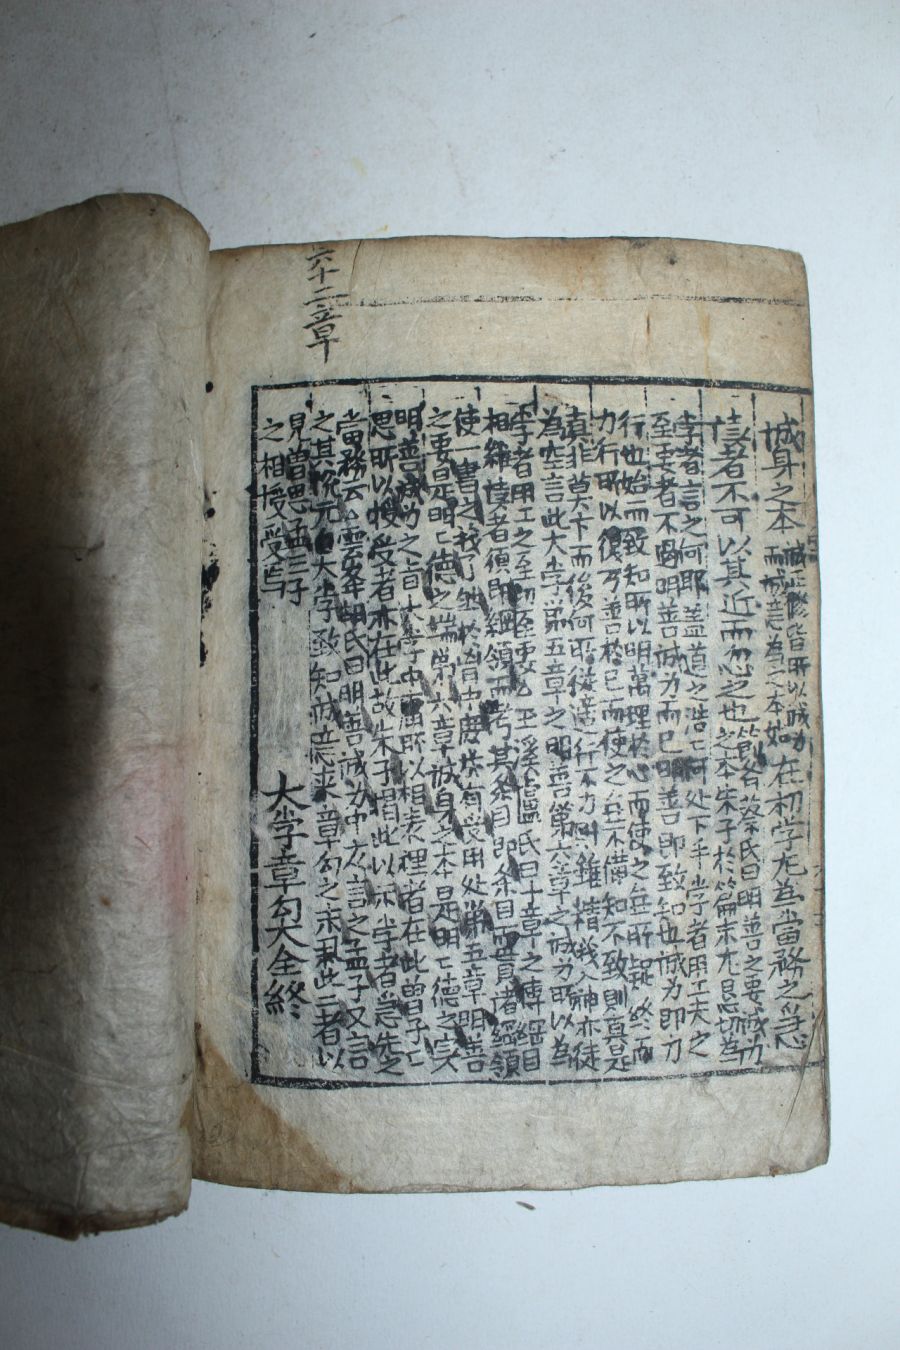 六十二章
誠身之本
誠正修皆所以誠身
而誠意為之本始
在初學尤為當務之急
讀者不可以其近而忽之也
節齋蔡氏曰明善之要誠身
之本朱子於篇末尤懇切為
李者言之何耶盖道之浩〻何处下手李者用工夫之
至要者不過明善誠身而已明善即致知也誠身即力
行也始而致知所以明萬理於心而使之无所疑終而
力行所以復万善於己而使之无不備知不致則真是
真非莫卞而後何所從適行不力則雖精義入神亦徒
為空言此大李第五章之明善第六章之誠身所以為
李者用工之至而至要也玉溪盧氏曰十章之傳綱目
相維讀者須即綱領而考其条目即条目而貫諸綱領
使一書之旨了然於胷中庶其有受用处第五章明善
之要是明〻德之端第六章誠身之本是明〻德之实
明善誠身之旨大李中庸所以相表裡者在此曽子子
思所以授受者亦在此故朱子揭此以示李者為急先之
當務云雲峯胡氏曰明善誠身中庸言之孟子又言
之其說元自大李致知誠意來章句之末举此二者以
見曽思孟三子
之相授受焉
大李章句大全終